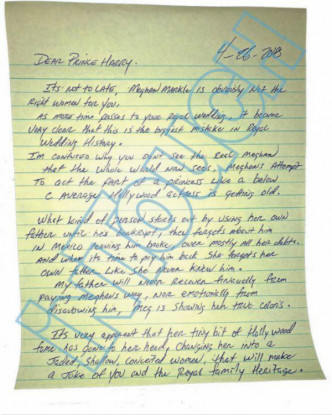 4-26-2018
DEAR PRINCE HARRY.
It's not to late, Meghan Markle is obviously not the
right woman for you.
As more time passes to your royal wedding, it became
very clear that this is the biggest mistake in Royal
Wedding History.
I'm confused why you don't see the real Meghan
that the whole world now sees. Meghan's attempt
to act the part of a princess like a below
C average Hollywood actress is getting old.
What kind of person starts out by using her own
father until he's bankrupt, then forgets about him
in Mexico leaving him broke over mostly all her debts.
And when it's time to pay him back she forgets her
own father like she never knew him.
My father will never recover financially from
paying Meghan's way, nor emotionally from
disavowing him. Meg is showing her true colors.
It's very apparent that her tiny bit of Hollywood
fame has gone to her head, changing her into a
Jaded, Shallow, Conceited woman, that will make
a Joke of you and the Royal family Heritage.
IN TOUCH